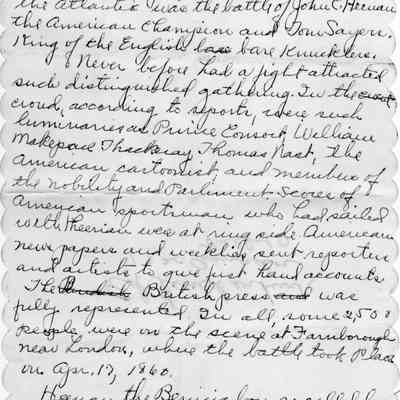 the Atlantic was the battle of John C. Heenan
the American Champion and Tom Sayers.
King of the English bare Knucklers.
Never before had a fight attracted
such distinguished gathering. In the
croud, according to reports, were such
luminaries as Prince Consort, William
Makepeace Thackeray, Thomas Nast, the
American cartoonist, and members of
the nobility and Parliment. Scores of
American sportsman, who had sailed
with Heenan were at ring side. American
news papers and weeklies sent reporters
and artists to give just hand accounts
The British press was
fully represented. In all, some 2,500
people, were on the scene at Farnborough
near London, where the battle took Place
on Apr. 17, 1860.
Heenan the Benicia boy as called